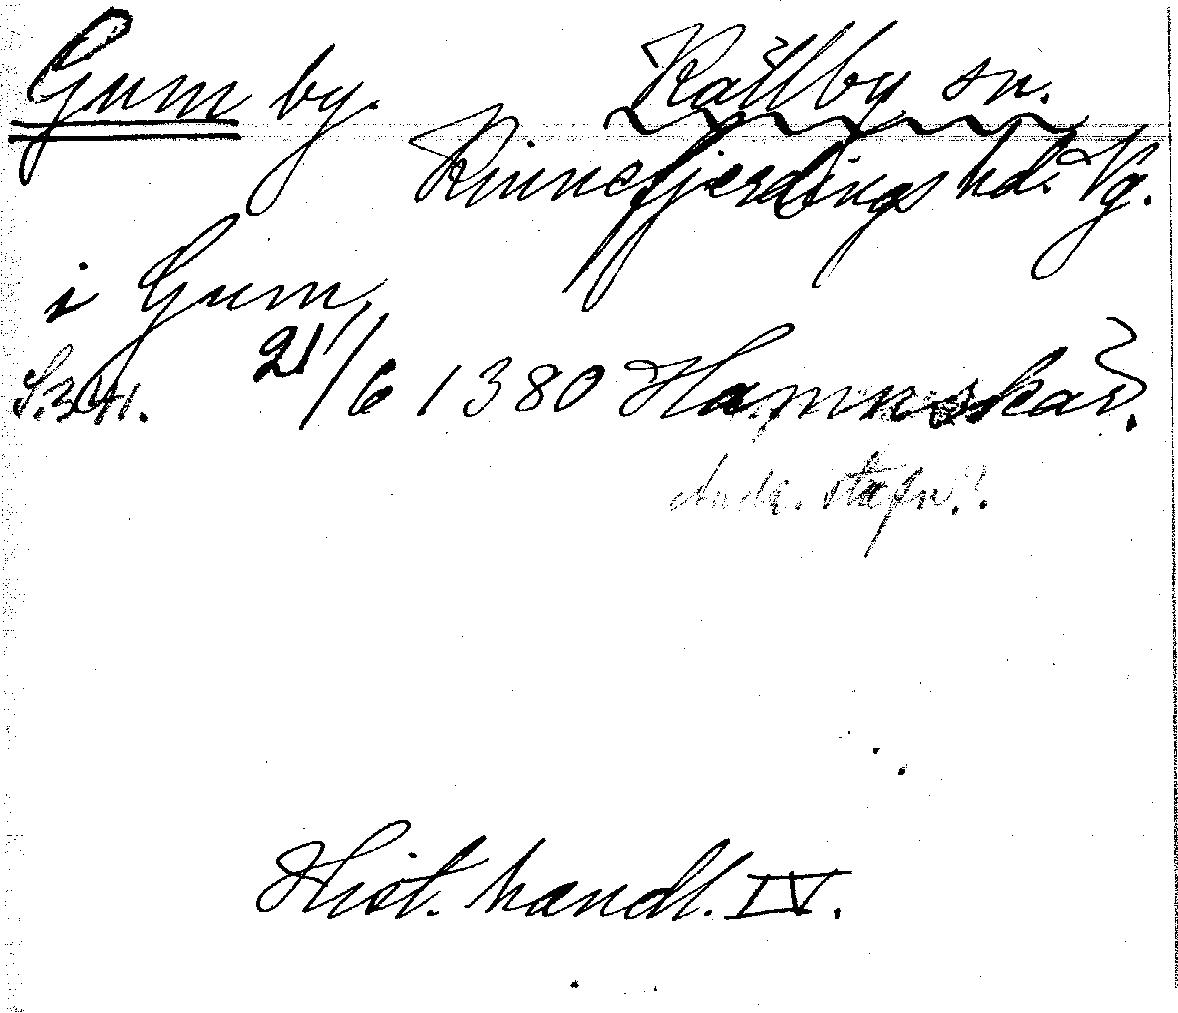 Gum by. Källby sn.
Kinnefjerdings hd. Vg.
i Gum,
S. 341. 21/6 1380 Hamnskär.
Hist. handl. IV.